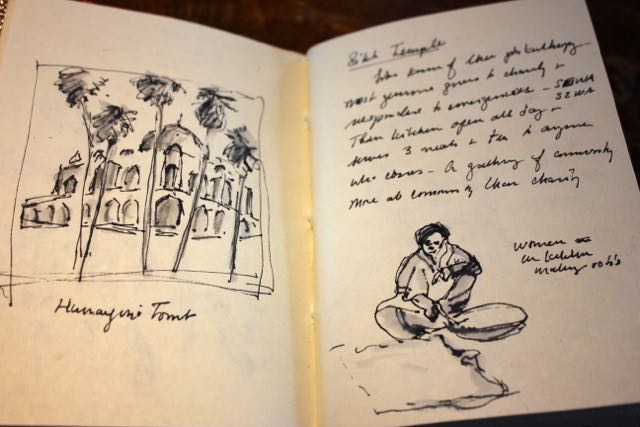 Humayun's Tomb
Sikh Temple
known of their philanthropy
most generous givers to charity +
respondent to emergencies - SEWA
Their kitchen open all day - SEWA
serves 3 meals + tea to anyone
who comes - A gallery of community
more at community their charity
women
in kitchen
making roti's